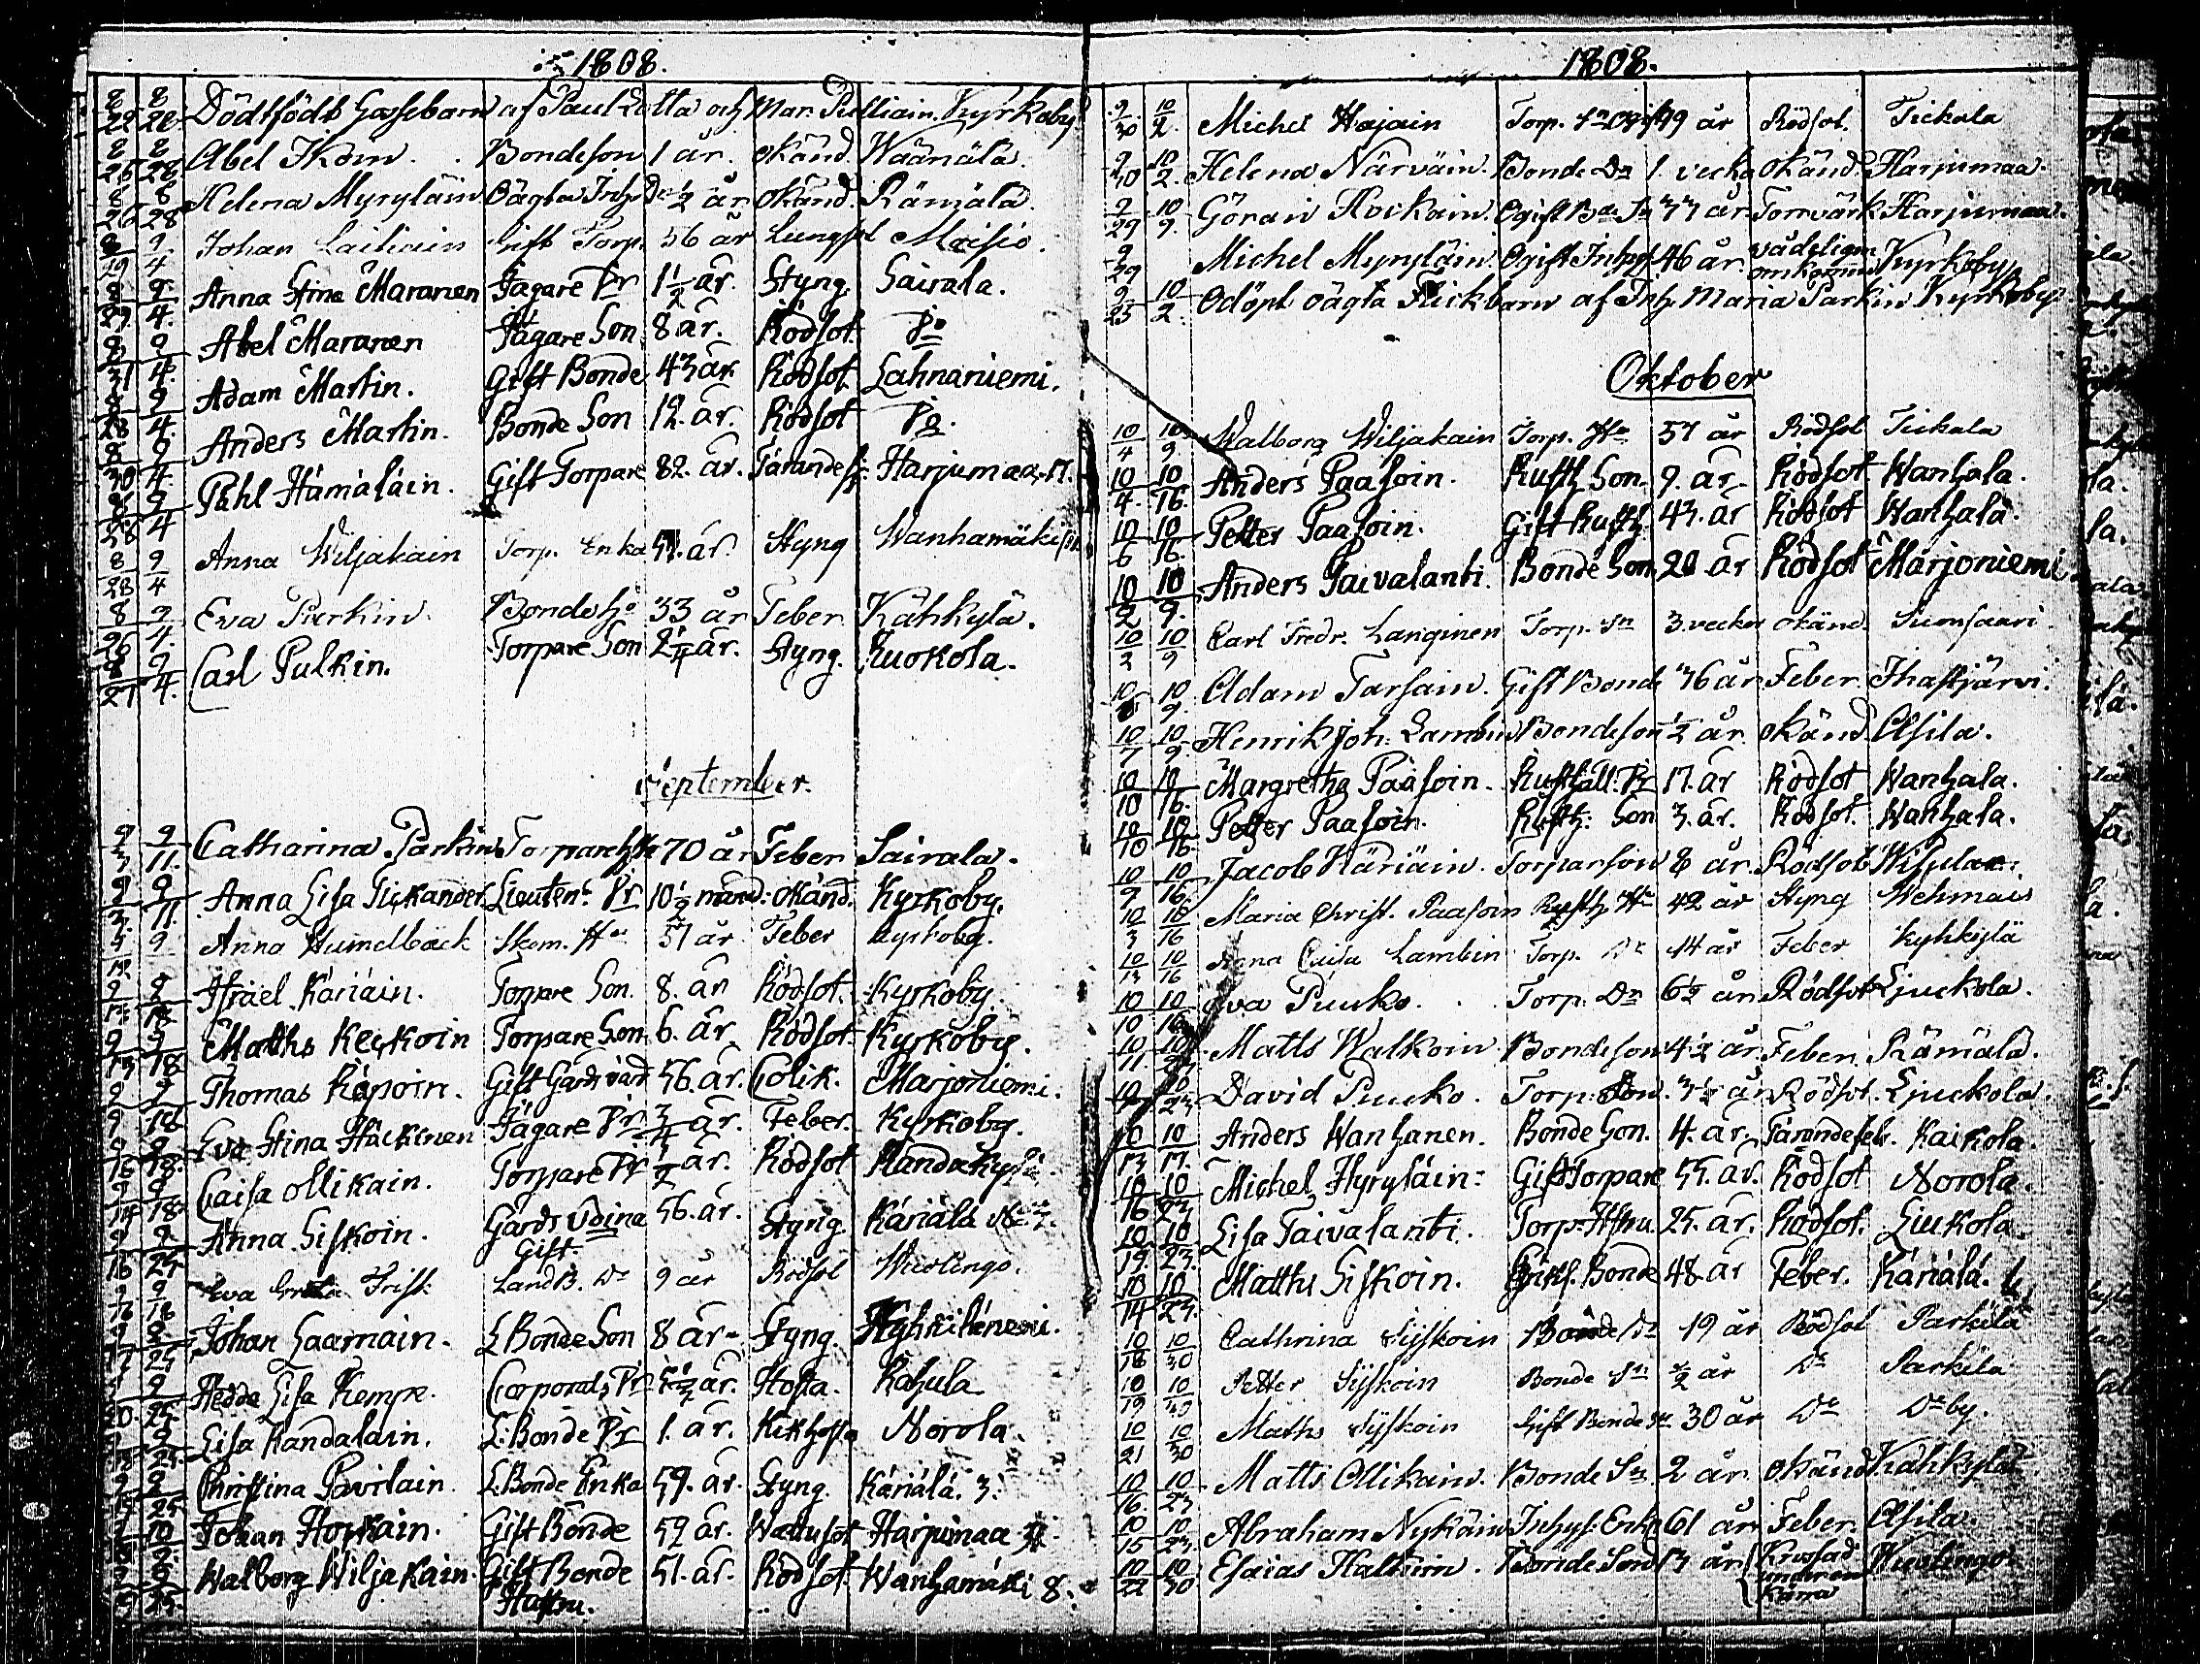 1808.
8/22 8/28 Dödtfödt Gossebarn af Paul Lotta och Mar. Pulliain. Kyrkoby
8/26 8/28 Abel Ikoin. Bondeson 1 år. okänd. Wäänälä.
8/26 8/28 Helena Myryläin Oägta Inhys Dr ½ år okänd. Rämälä.
8/29 9/4 Johan Laitiain Gift Torp. 56 år Lungsot Moisio.
9/4 Anna Stina Maranen Jägare Dr 1½ år. Styng. Sairala.
9/4 Abel Maranen Jägare Son 8 år. Rödsot. Do
8/31 9/4 Adam Martin. Gift Bonde 43 år. Rödsot. Lahnaniemi.
8/28 9/4 Anders Martin. Bonde Son 12. år. Rödsot Do.
8/30 9/4 Påhl Hämäläin. Gift Torpare 82. år. Tärandes: Harjumaa
8/28 9/4 Anna Wiljakain Torp. Enka 51. år. Styng Wanhamäki
8/28 9/4 Eva Parkin. Bonde Ho 33 år Feber Kähkylä.
8/26 9/4 Carl Pulkin. Torpare Son 2¼ år. Styng. Kuokola.
September.
9/3 9/11. Catharina Parkin Torpare 70 år Feber Sairala.
9/3. 9/11. Anna Lisa Tickander Lieutent. Dr 10½ månd: okänd. Kyrkoby.
9 9 Anna Humelbäck Skom. Ha 57 år Feber Kyrkoby.
9 9 Israel Käriäin. Torpare Son. 8. år Rödsot. Kyrkoby.
9 9/18 Matths Keckoin Torpare Son 6. år. Rödsot. Kyrkoby.
9/9 9/18 Thomas Käpoin. Gift Gårdsvärd 56. år. Colik. Marjoniemi.
9 9/18 Eva Stina Häckinen Jägare Dr. ¾ år. Feber. Kyrkoby.
9/14 9/18 Caisa Ollikain. Torpare Dr ½ år. Rödsot
9/16 9/25 Anna Siskoin. Gårdsvärdina 56. år. Styng. Käriälä
Gift
9/16 9/18 Eva Greta Frisk LandB. Dr 9 år Rödsot Wuolingo.
9/17 9/25 Johan Saamain. L Bonde Son 8 år. Styng.
9/20. 9/25 Hedda Lisa Kempe. Corporals Dr år. Hosta. Kahula
9 9/25. Lisa Kandalain. L: Bonde Dr 1. år. Kikhosta Norola.
9 9/25 Christina Pavilain. L Bonde Enka 59. år. Styng. Käriälä. 3.
9 Johan Hockain. Gift Bonde 52 år. Wattusot Harjumaa
9 9/25. Walborg Wiljakain. Gift Bonde 51. år. Rödsot. Wanhamäki 8.
Hustru.
1808.
9/30 10/2. Michel Hajain Torp. Sn Ogift 49 år Rödsot. Tickala
9/30 10/2. Helena Närväin. Bonde Dr 1. vecka okänd. Harjumaa.
9/29 10/9. Görain Hockain. Ogift Bo. Sn 77 år Torrvärk Harjumaa.
9/29 Michel Myryläin Ogift Inhys 46 år vådeligen Kyrkoby
omkommit
9/25 10/2. Odöpt oägta Flickbarn af Inh. Maria Parkin Kyrkoby
Oktober
10/4 10/9 Walborg Wiljakain Torp. Ha 57 år Rödsot Tickala
10/4. 10/16. Anders Paasoin. Rusth Son. 9. år. Rödsot Wanhala.
10/6 10/16. Petter Paasoin. Gift Rusth. 43. år Rödsot Wanhala.
10/2 10/9. Anders Paivalanti. Bonde Son. 20 år Rödsot Marjoniemi
10/2 10/9 Carl Fredr. Langinen Torp. Sn 3. veckor okänd. Suonsaari.
10 10/9. Adam Tarsain. Gift Bonde 36 år Feber Ihastjärvi.
10/7 10/9. Henrik Joh. Lambin Bondeson ½ år. okänd. Asila.
10/10 10/16. Margretha Paasoin. Rusthåll: Dr 17. år Rödsot Wanhala.
10/10 10/16. Petter Paasoin. Rusth. Son 3. år. Rödsot. Wanhala.
10/9 10/16. Jacob Käriäin. Torparson 8 år. Rödsot
10/3 10/16 Maria Christ. Paasoin Rusth. Ha 42 år Styng Wehmais
10/13 10/16 Anna Caisa Lambin Torp. Dr 14 år Feber Kyhkylä
10/10 10/16 Eva Puuko. Torp. Dr 6½ år Rödsot Ljuckola.
10/11. 10 Matts Walkoin. Bondeson 4½ år. Feber Rämälä.
10 10/23 David Puuko. Torp. Son. år Rödsot. Ljuckola.
10/13 10/17. Anders Wanhanen. Bonde Son. 4. år. Tärandesot. Kaikola.
10/16 10/23 Michel Hyryläin. Gift Torpare 55. år. Rödsot Norola.
10/19. 10/23. Lisa Taivalanti. Torp. Hstru. 25. år. Rödsot. Liukola
10/14 10/23. Matths Siskoin. Bonde 48. år Feber. Käriälä.
10/18 10/30 Cathrina Syskoin Bonde Dr 19 år Rödsot Parkila
10/19 10/30 Petter Syskoin Bonde Sn ½ år Do Parkila
10/21 10/30 Maths Syskoin Gift Bonde Sn 30 år Do Do by.
10/16. 10/23 Matts Ollikain. Bonde Sn. 2 år. okänd Kähkylä
10/15 10/23. Abraham Nykäin Inhys: Enkl 61 år Feber. Asila.
10/22 10/30 Esaias Halkoin. Bonde Son 13 år { Krossad Wuolingo
under en
Kärra